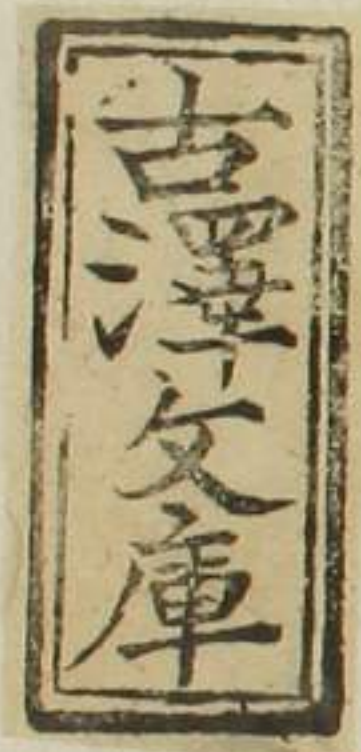 古澤文庫